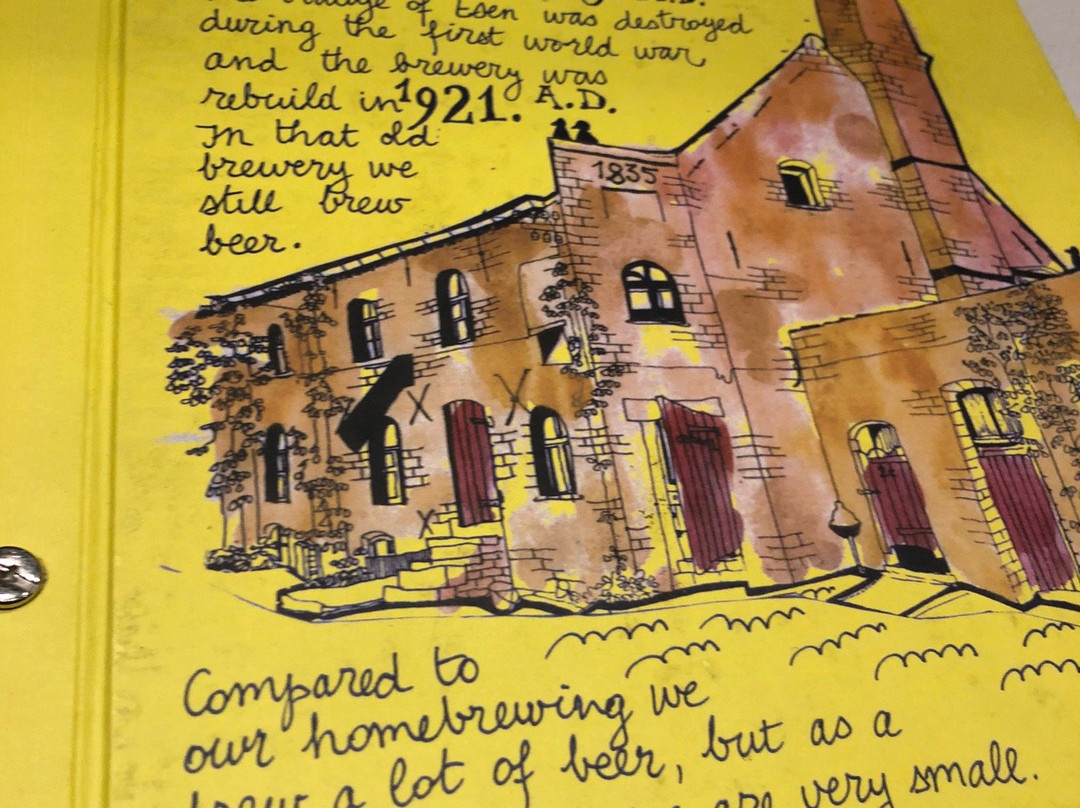 village of Esen was destroyed
during the first world war
and the brewery was
rebuild in 1921. A.D.
In that old
brewery we
still brew
beer.
1835
Compared to
our homebrewing we
brew a lot of beer, but as a
are very small.